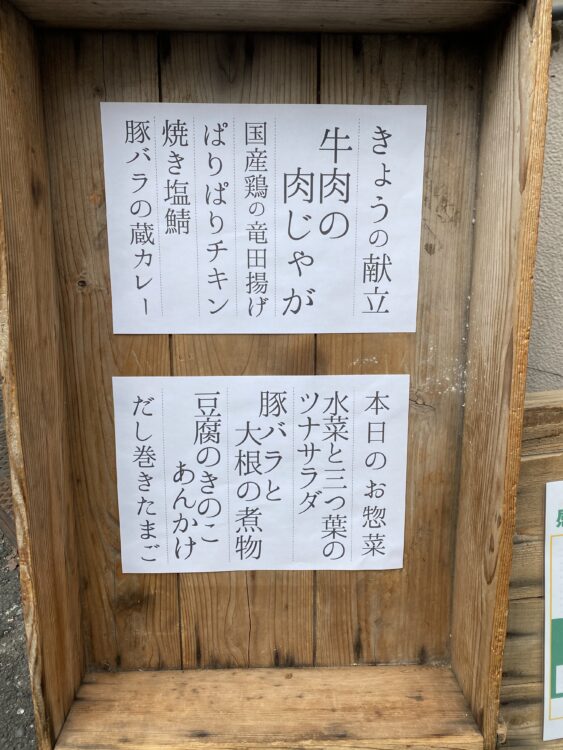 きょうの献立
牛肉の
肉じゃが
国産鶏の竜田揚げ
ぱりぱりチキン
焼き塩鯖
豚バラの蔵カレー
本日のお惣菜
水菜と三つ葉の
ツナサラダ
豚バラと
大根の煮物
豆腐のきのこ
あんかけ
だし巻きたまご